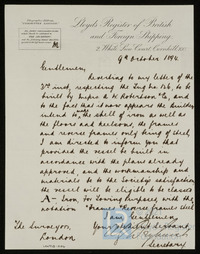 Lloyd's Register of British
and Foreign Shipping.
2 White Lion Court, Cornhill
9th October 1894
Gentlemen,
Reverting to my letter of the
3rd inst, respecting the Tug No 126 to be
built by Messrs H. Robertson & Co, and
to the fact that it now appears the builders
intend the shell of iron as well as
the floors and keelsons, the frames
and reverse frames only being of steel,
I am directed to inform you that
provided the vessel be built in
accordance with the plans already
approved, and the workmanship and
materials be to the Society's satisfaction
the vessel will be eligible to be classed
A - Iron, For Towing Purposes with the
notation "Frames & Reverse frames steel"
I am, Gentlemen,
The Surveyors,
London.
Your obedient servant,
Secretary